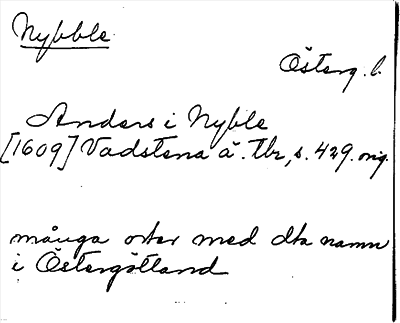 Nybble
Österg. l.
Anders i Nyble
[1609] Vadstena ä. Tbr, s. 429. orig.
många orter med dta namn
i Östergötland